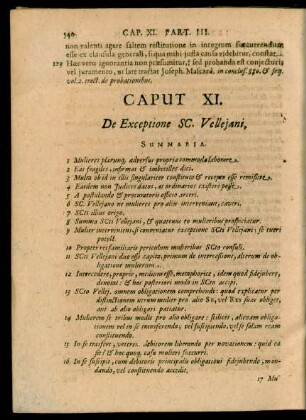 340 CAP. XI. PART. III.
non valenti agere saltem restitutione in integrum succurrendum
esse ex clausula generali, siqua mihi justa causa videbitur, constat.
229 Hæc vero ignorantia non præsumitur, sed probanda est conjecturis
vel juramento, ut late tractat Joseph. Mascard. in conclus. 880. & seq.
vol. 2. tract. de probationibus.
CAPUT XI.
De Exceptione SC. Vellejani,
SUMMARIA.
1 Mulieres plerunq; adversus propria commoda laborare.
2 Eas fragiles, infirmas & imbecilles dici.
3 Multa ob id in illis singulariter constituta & recepta esse remissive.
4 Easdem non Judices datos, at ordinarios existere posse.
5 A postulando & procuratoris officio arceri.
6 SC. Vellejano ne mulieres pro aliis interveniant, caveri.
7 SCti illius origo.
8 Summa SCti Vellejani, & quatenus eo mulieribus prospiciatur.
9 Mulier interveniens, si conveniatur exceptione SCti Vellejani se tueri
potest.
10 Propter rei familiaris periculum mulieribus SCto consuli.
11 SCti Vellejani duo esse capita, primum de intercessione, alterum de ob-
ligatione mulierum.
12 Intercedere, proprie, medium esse, metaphorice, idem quod fidejubere,
denotat: & hoc posteriori modo in SCto accipi.
13 SCto Vellej. omnem obligationem comprehendi: quod explicatur per
distinctionem utrum mulier pro aliis SE, vel RES suas obliget,
aut ab alio obligari patiatur.
14 Mulierem se tribus modis pro alio obligare: scilicet, alienam obligatio-
nem vel in se transferendo; vel suscipiendo, vel se falsam ream
constituendo.
15 In se transfert, veterem debitorem liberando per novationem: quid ea
sit? & hoc quoq; casu mulieri succurri.
16 In se suscipit, cum debitoris principalis obligationi fidejubendo, man-
dando, vel constituendo accedit.
17 Mu-